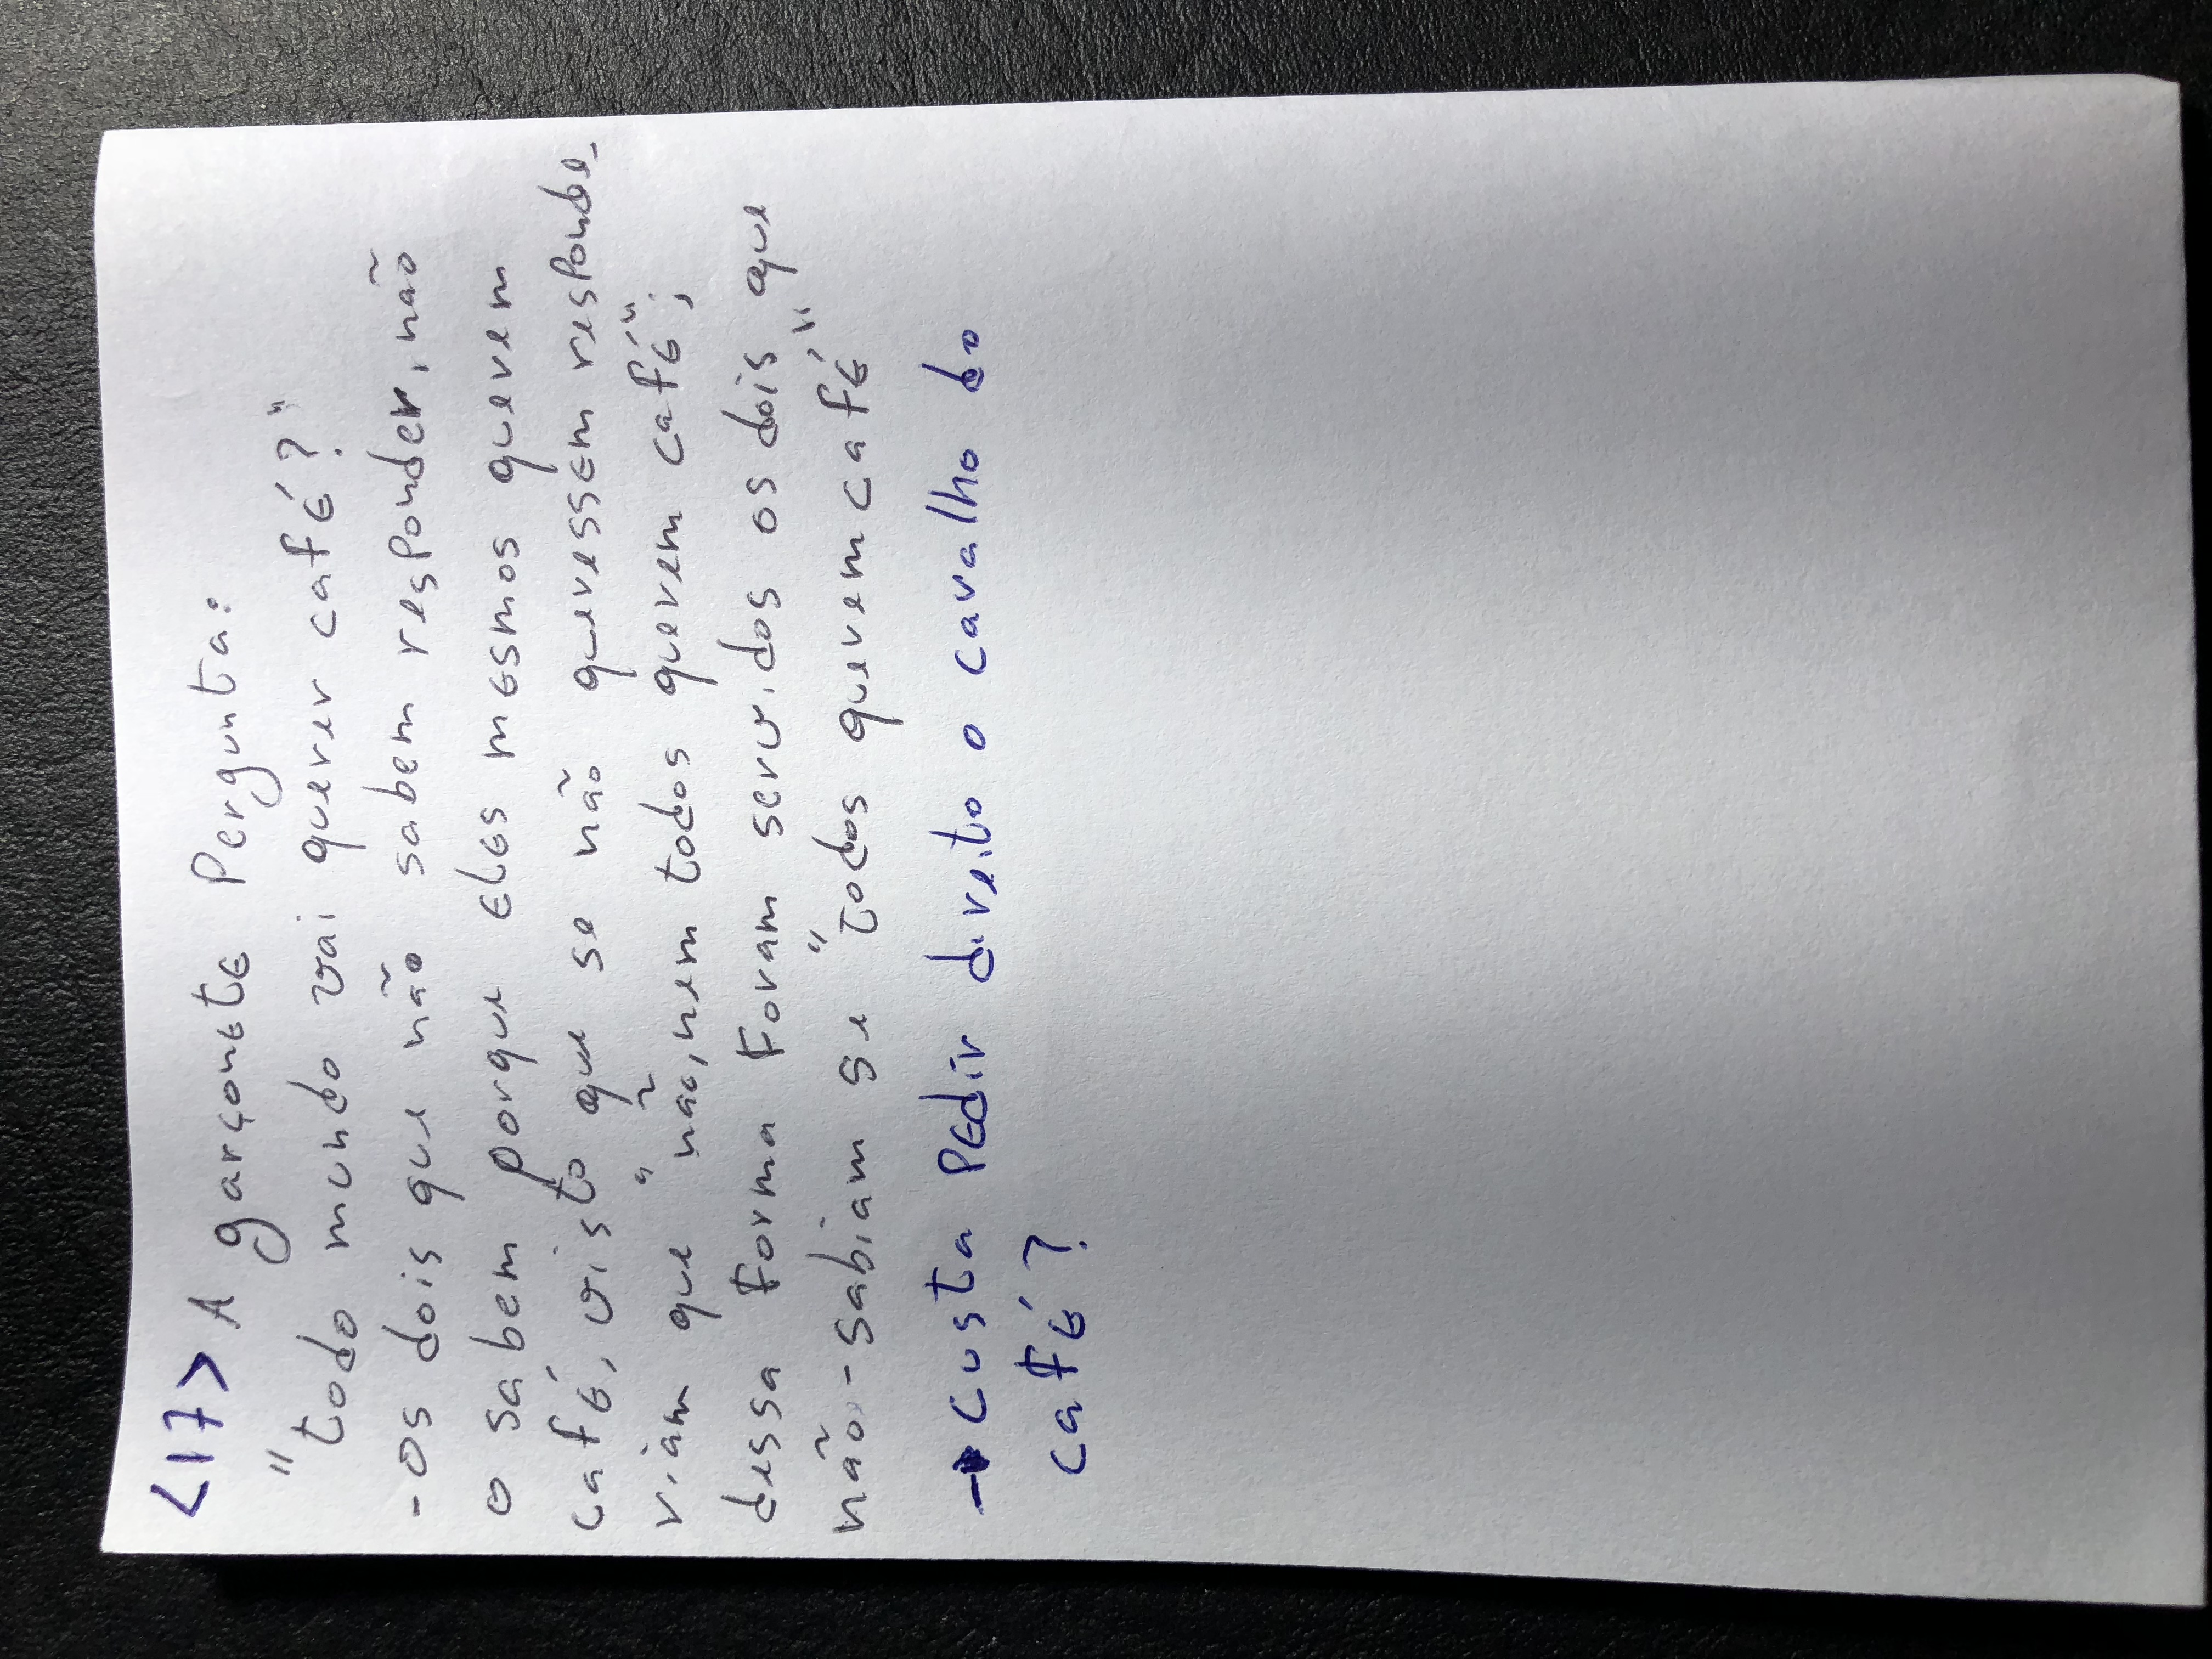 <17> A garçonete pergunta:
"todo mundo vai querer café?"
- Os dois que não sabem responder, não
o sabem porque eles mesmos querem
café, visto que se não queressem responde-
riam que "não, nem todos querem café";
dessa forma foram servidos os dois que
não-sabiam se "todos querem café"
→ custa pedir direito o caralho do
café?